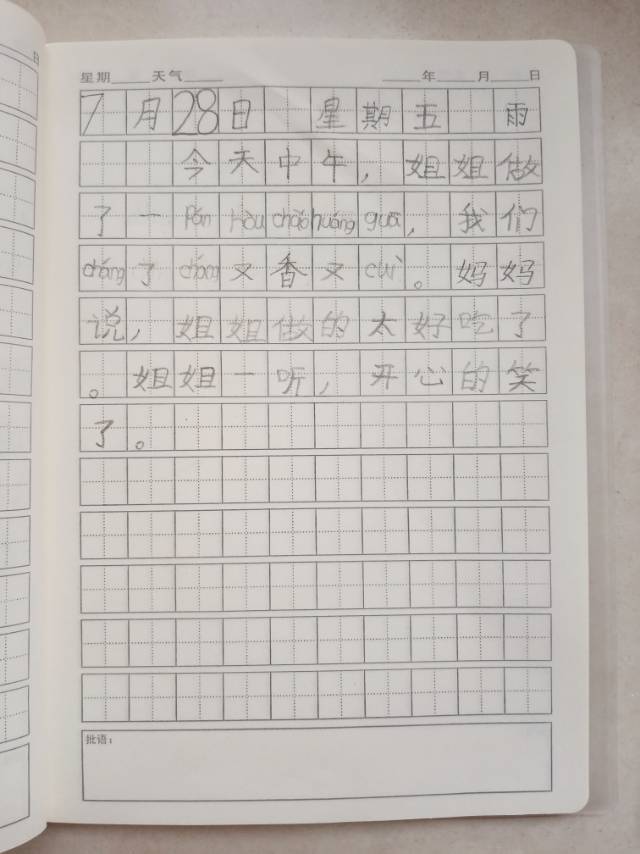 星期 天气 年 月 日
7月28日 星期五 雨
今天中午，姐姐做
了一pán hòu chǎo huáng guā，我们
cháng了cháng又香又cuì。妈妈
说，姐姐做的太好吃了
。姐姐一听，开心的笑
了。
批语：